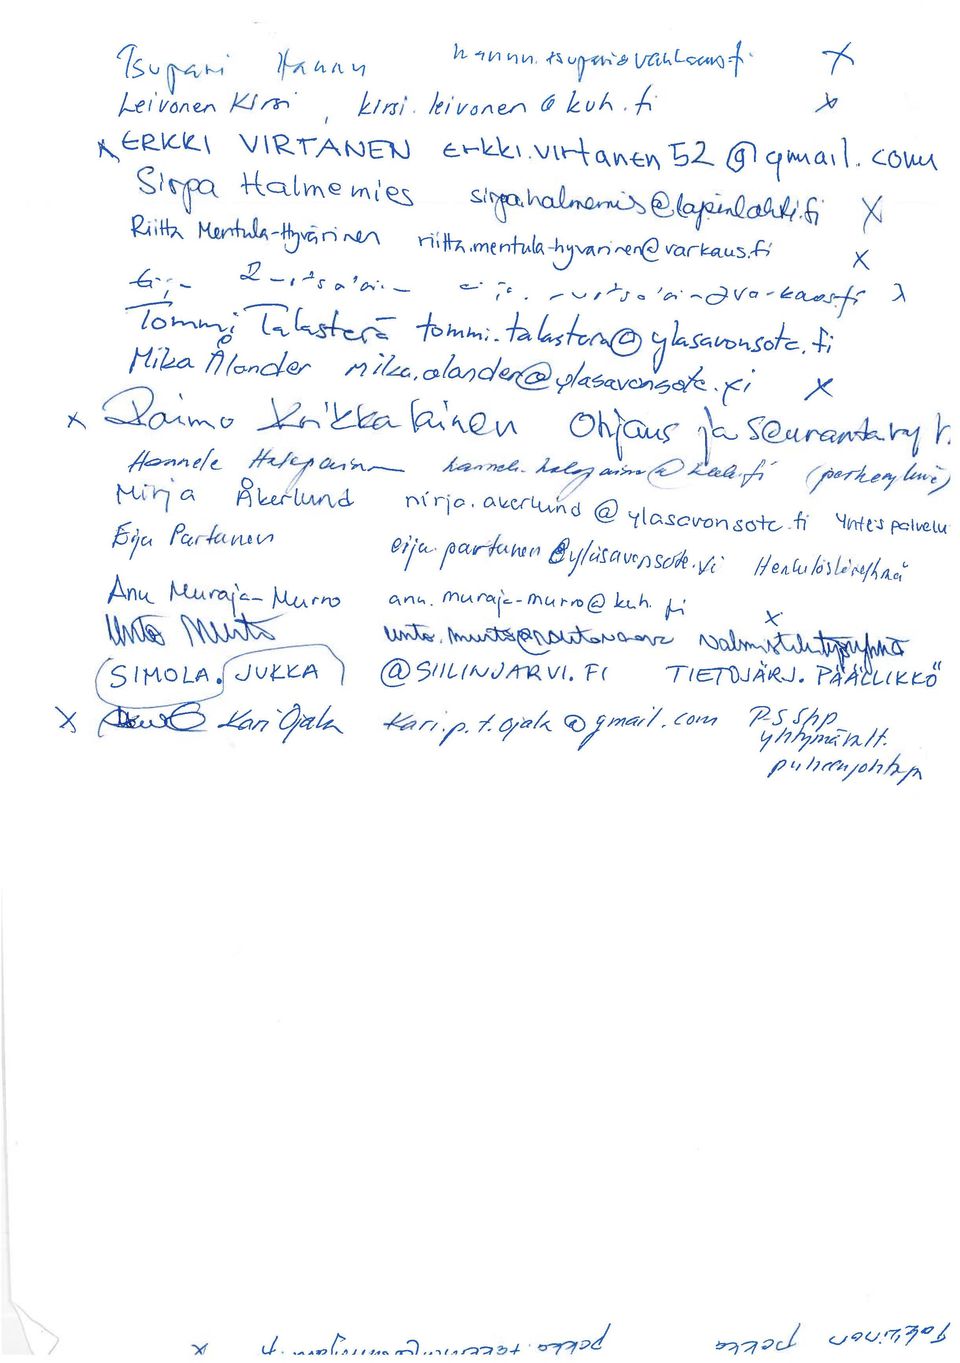 Tsupari Hannu hannu.tsupari@varkaus.fi X
Leivonen Kirsi, kirsi.leivonen@kuh.fi X
X ERKKI VIRTANEN erkki.virtanen52@gmail.com
Sirpa Halmemies sirpa.halmemies@lapinlahti.fi X
Riitta Mentula-Hyvärinen riitta.mentula-hyvarinen@varkaus.fi X
Tommi Talasterä tommi.talastera@ylasavonsote.fi
Mika Ålander mika.alander@ylasavonsote.fi X
X Raimo Ohjaus ja Seurantaryhr.
Hannele
Mirja Åkerlund mirja.akerlund@ylasavonsote.fi Yhteispalvelu
Eija Partanen eija.partanen@ylasavonsote.fi Henkilöstöryhmä
Anu Muraja-Murro anu.muraja-murro@kuh.fi
X
Unto Murto
SIMOLA.JUKKA @SIILINJARVI.FI TIETOJÄRJ. PÄÄLLIKKÖ
X Kari Ojala kari.p.t.ojala@gmail.com PSSHP
yhtymävalt.
puheenjohtaja